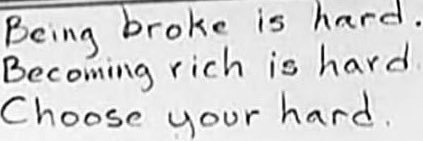 Being broke is hard.
Becoming rich is hard.
Choose your hard.